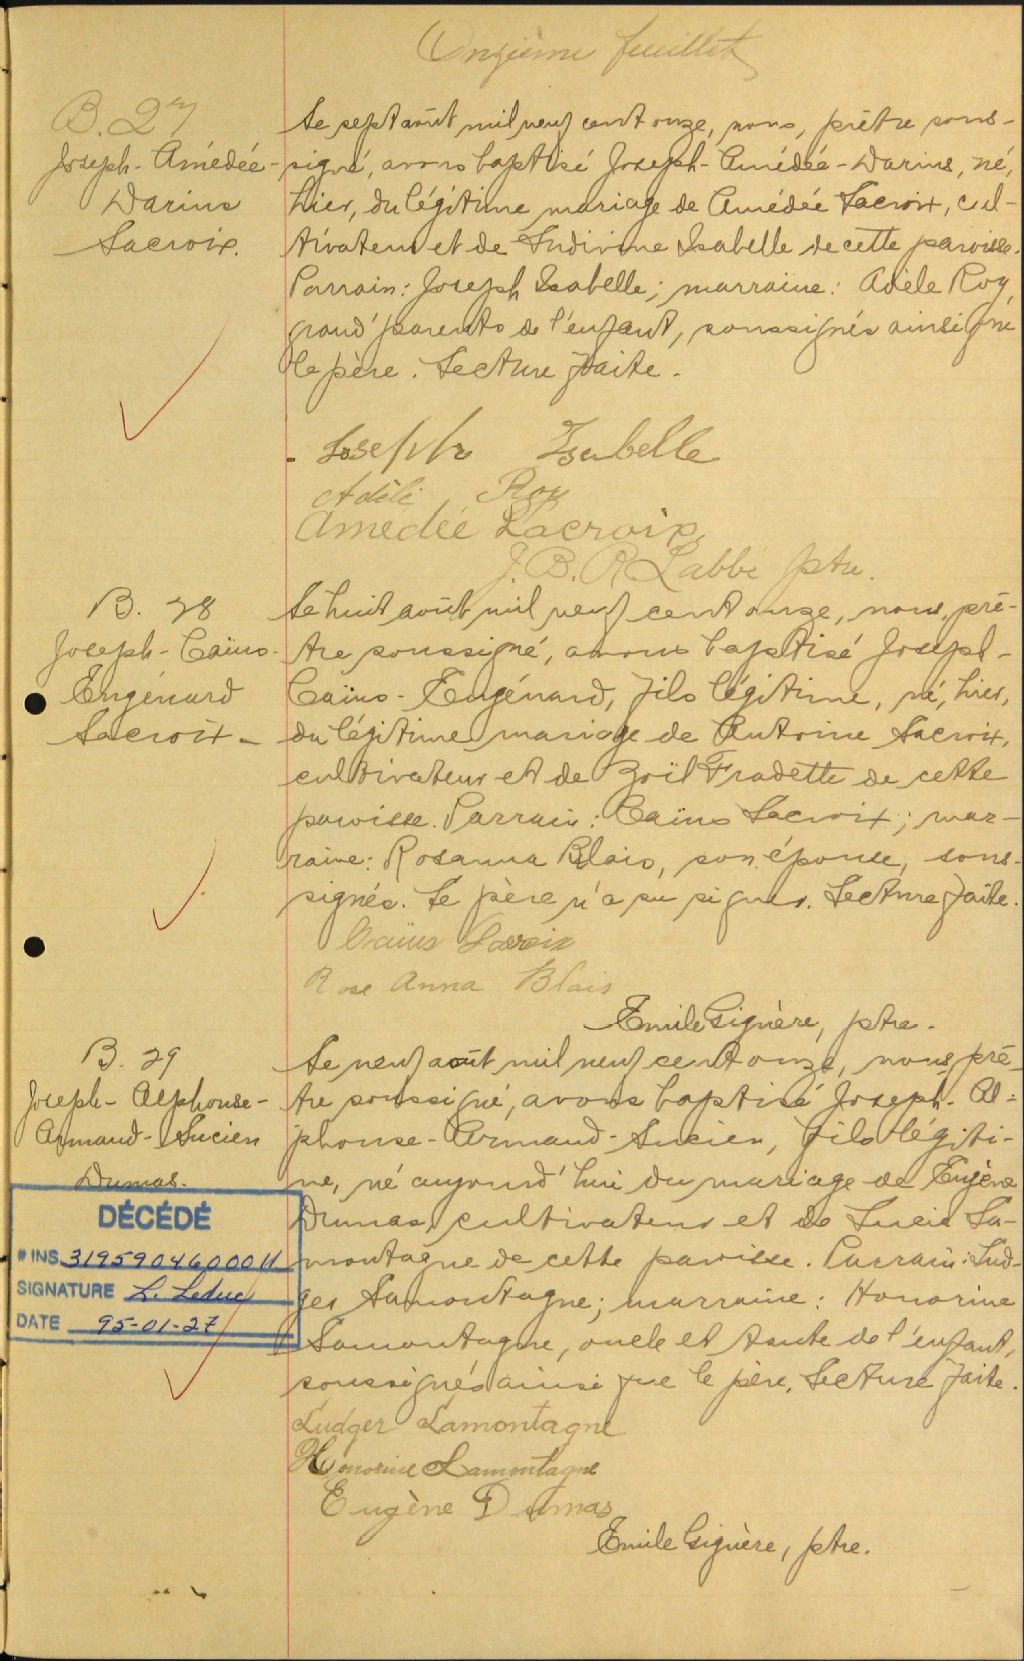 Onzième feuillet
B. 27
Joseph-Amédée-
Darius
Lacroix.
Le sept août mil neuf cent onze, nous, prêtre sous-
signé, avons baptisé Joseph-Amédée-Darius, né,
hier, du légitime mariage de Amédée Lacroix, cul-
tivateur et de Ludivine Isabelle de cette paroisse.
Parrain: Joseph Isabelle; marraine: Adèle Roy,
grand'parents de l'enfant, soussignés ainsi que
le père. Lecture faite.
Joseph Isabelle
Adèle Roy
Amedée Lacroix
J. B. R Labbé ptre.
B. 28
Joseph-Caïus-
Eugénard
Lacroix-
Le huit août mil neuf cent onze, nous, prê-
tre soussigné, avons baptisé Joseph-
Caïus-Eugénard, fils légitime, né, hier,
du légitime mariage de Antoine Lacroix,
cultivateur et de Zoïl Fradette de cette
paroisse. Parrain: Caïus Lacroix; mar-
raine: Rosanna Blais, son épouse, sous-
signés. Le père n'a su signer. Lecture faite.
Caïus Lacroix
Rose Anna Blais
Emile Giguère, ptre.
B. 29
Joseph-Alphonse-
Armand-Lucien
Dumas.
Le neuf août mil neuf cent onze, nous, prê-
tre soussigné, avons baptisé Joseph-Al-
phonse-Armand-Lucien, fils légiti-
me, né aujourd'hui du mariage de Eugène
Dumas, cultivateur et de Lucie La-
montagne de cette paroisse. Parrain: Lud-
ger Lamontagne; marraine: Honorine
Lamontagne, oncle et tante de l'enfant,
soussignés ainsi que le père. Lecture faite.
Ludger Lamontagne
Honorine Lamontagne
Eugène Dumas
Emile Giguère, ptre.
DÉCÉDÉ
# INS. 3195904600011
SIGNATURE L. Leduc
DATE 95-01-27